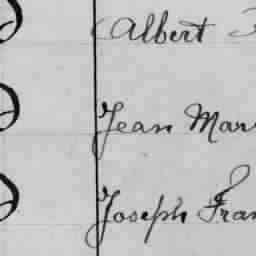 Albert
Jean Mar
Joseph Fran